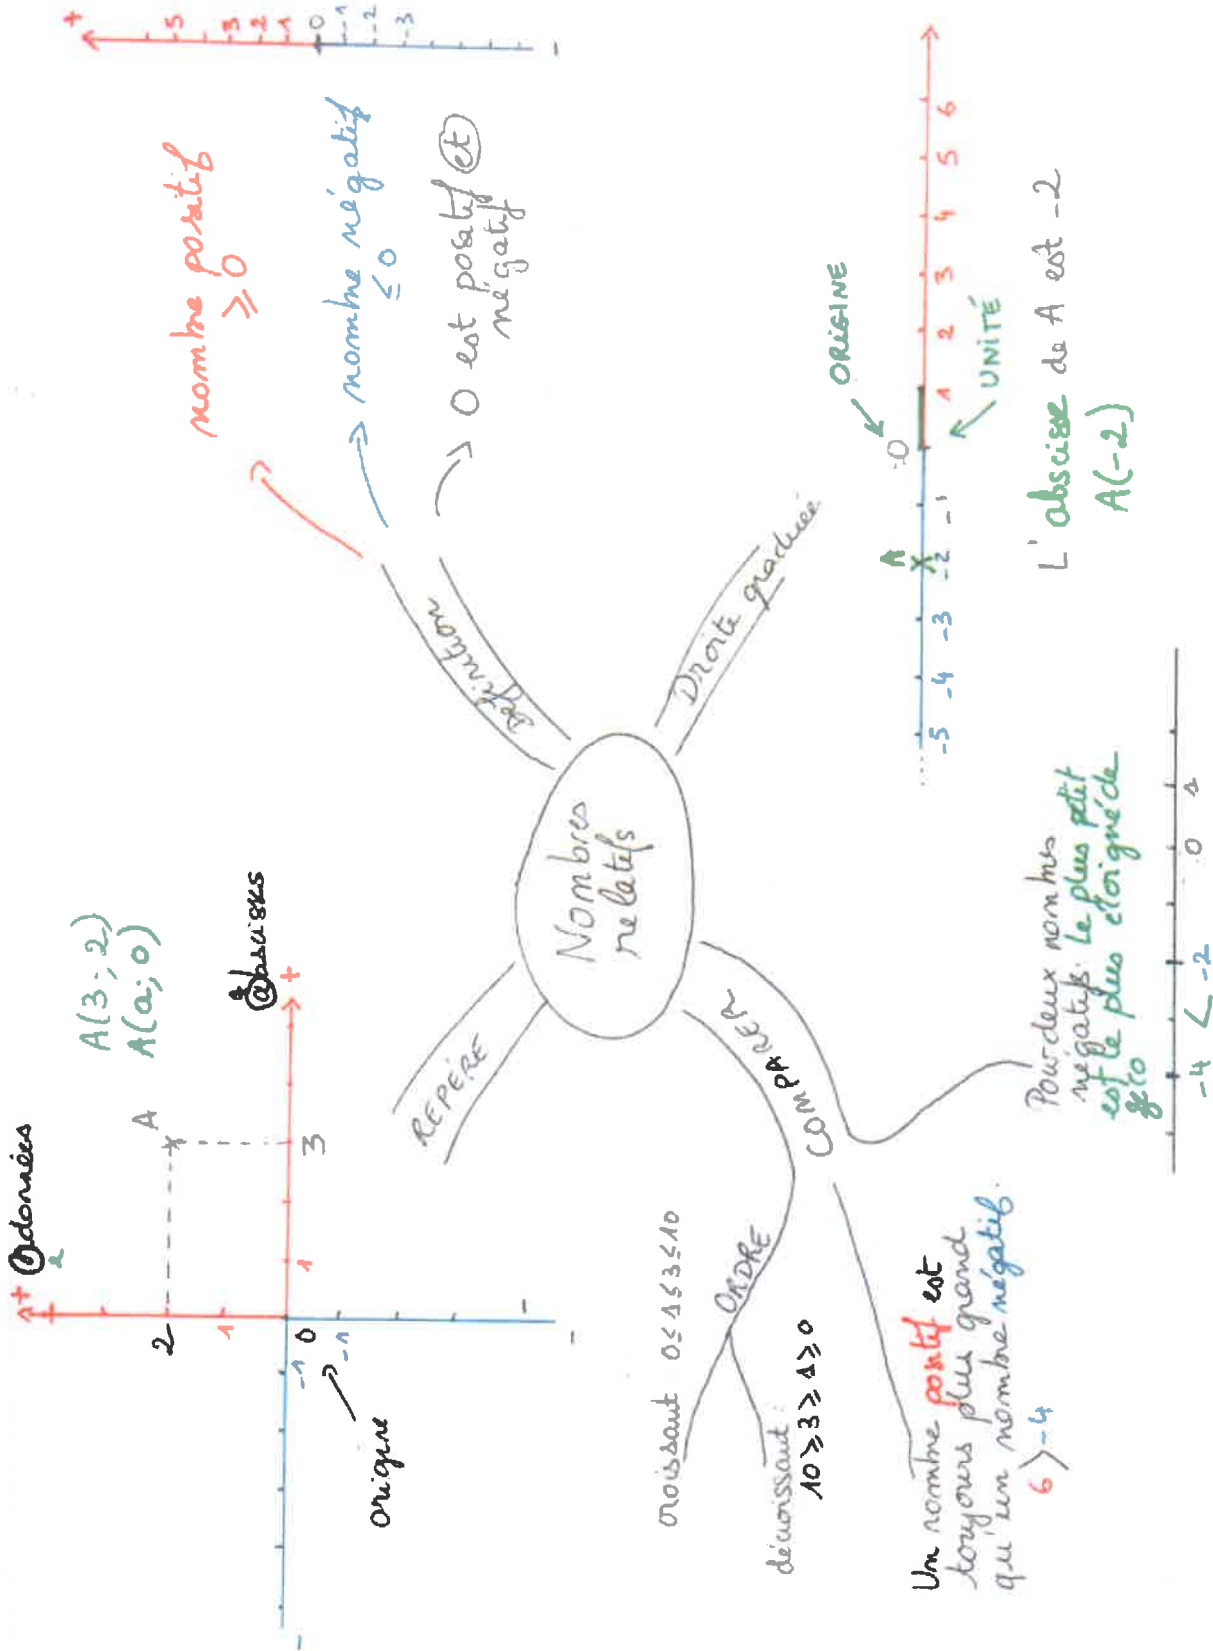 Nombres
relatifs
Définition
nombre positif
≥ 0
nombre négatif
≤ 0
0 est positif et
négatif
+
5
3
2
1
0
-1
-2
-3
-
Droite graduée
ORIGINE
UNITÉ
A
..... -5 -4 -3 -2 -1 0 1 2 3 4 5 6
L'abscisse de A est -2
A(-2)
REPÈRE
Ordonnées
+
2
1
0
-1
-
A
abscisses
+
-1
1
3
-
origine
A(3; 2)
A(a; o)
COMPARER
ORDRE
croissant 0≤1≤3≤10
décroissant:
10≥3≥1≥0
Un nombre positif est
toujours plus grand
qu'un nombre négatif.
6 > -4
Pour deux nombres
négatifs. Le plus petit
est le plus éloigné de
0
-4 < -2 0 1